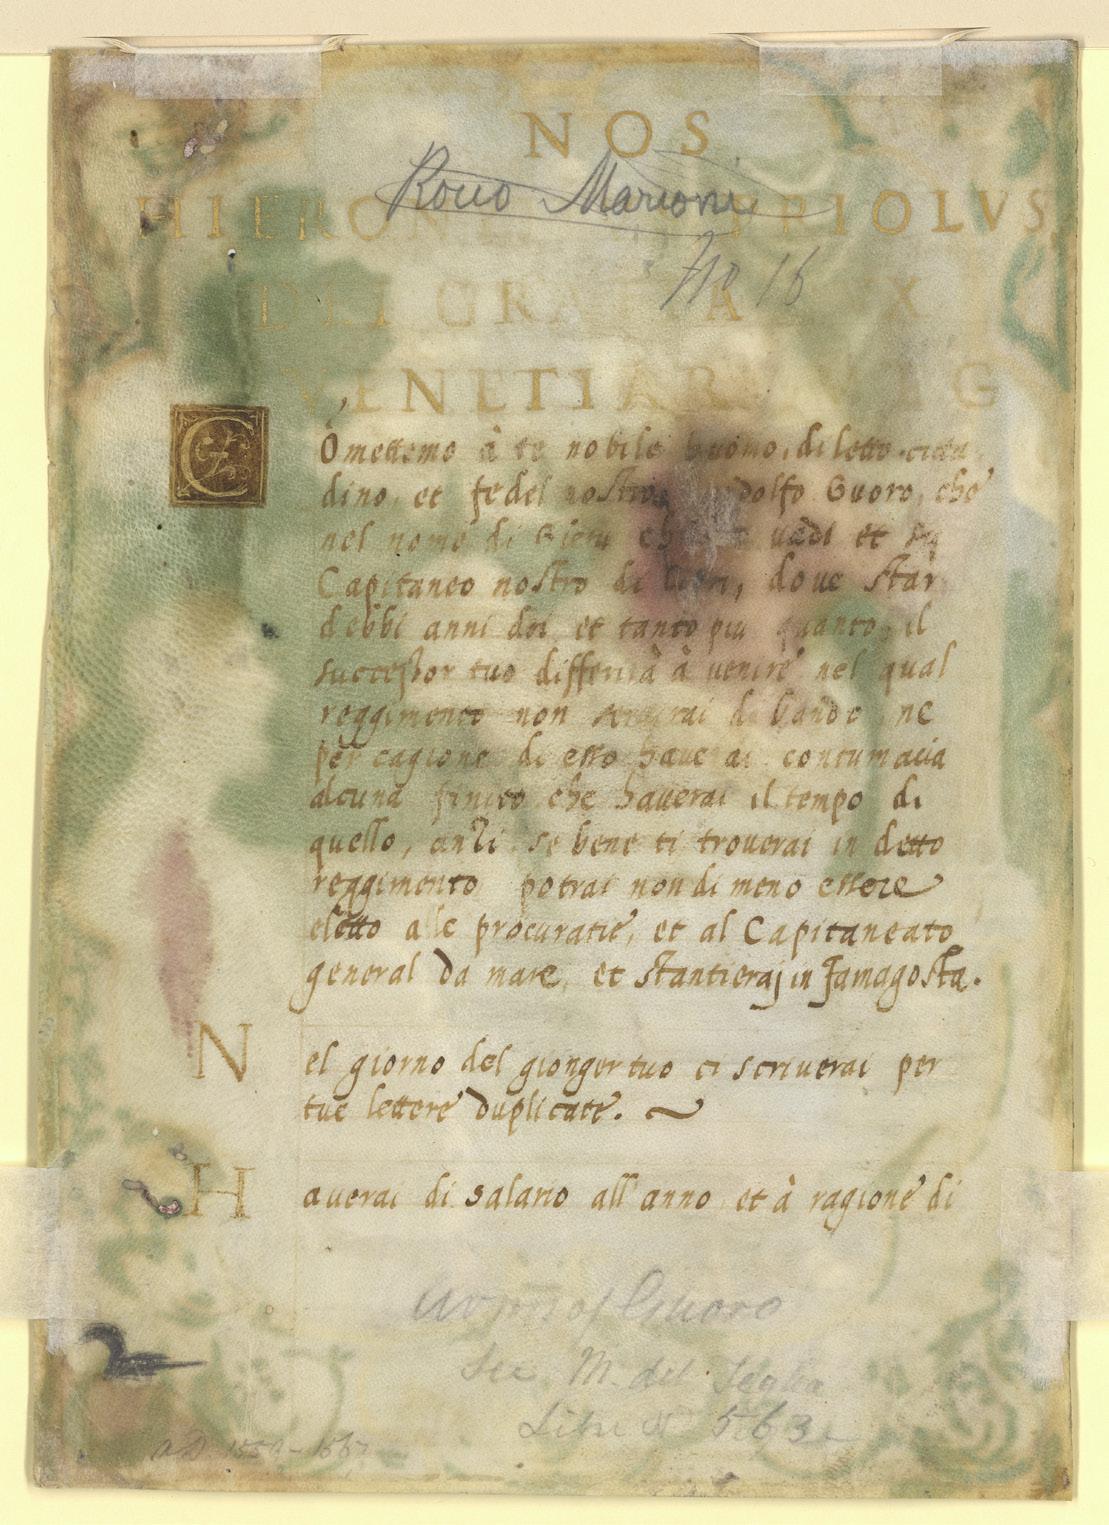 NOS
Rocco Marconi
HIERON PRIOLVS
No 16
DEI GRA A X
VENETIAR
C Omettemo à te nobile huomo, diletto citta
dino, et fedel nostro dolfo Guoro, che
nel nome di et
Capitaneo nostro di, dove star
debbi anni doi et tanto piu quanto, il
successor tuo differirà à venire nel qual
reggimento non di bando, ne
per cagione di esso haverai contumacia
alcuna finito che haverai il tempo di
quello, anzi se bene ti troverai in detto
reggimento potrai non di meno essere
eletto alle procuratie, et al Capitaneato
general da mare, et stantieraj in Famagosta.
N el giorno del gionger tuo ci scriverai per
tue lettere duplicate.
H averai di salario all' anno et à ragione di
Arms of Guoro
See M. del
563
AD 1559-1567